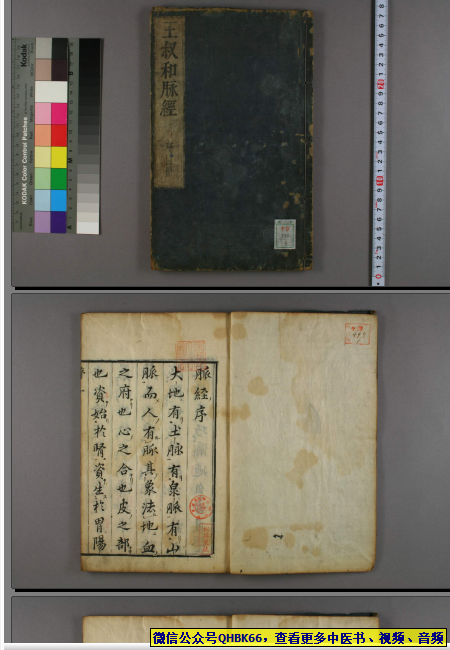 Kodak
KODAK Color Control Patches
王叔和脉經
脈經序
大地有土脉有泉脉有山
脈而人有脈其象法地血
之府也心之合也皮之部
也資始於腎資生於胃陽
微信公众号QHBK66，查看更多中医书、视频、音频